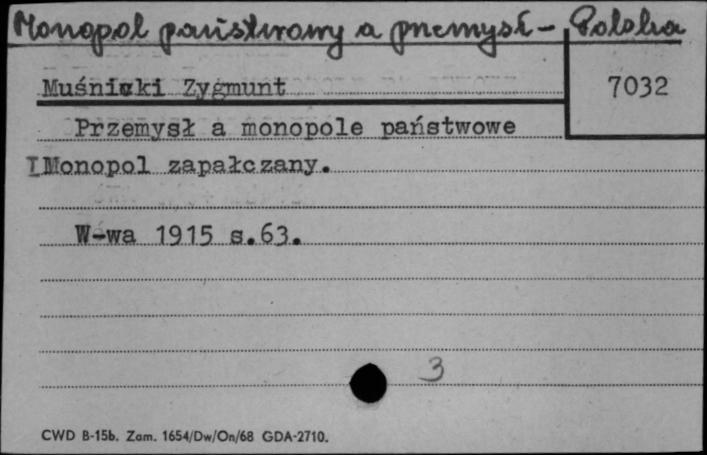 Monopol państwowy a przemysł - Polska
Muśnicki Zygmunt
7032
Przemysł a monopole państwowe
I Monopol zapałczany.
W-wa 1915 s.63.
3
CWD B-15b. Zam. 1654/Dw/On/68 GDA-2710.